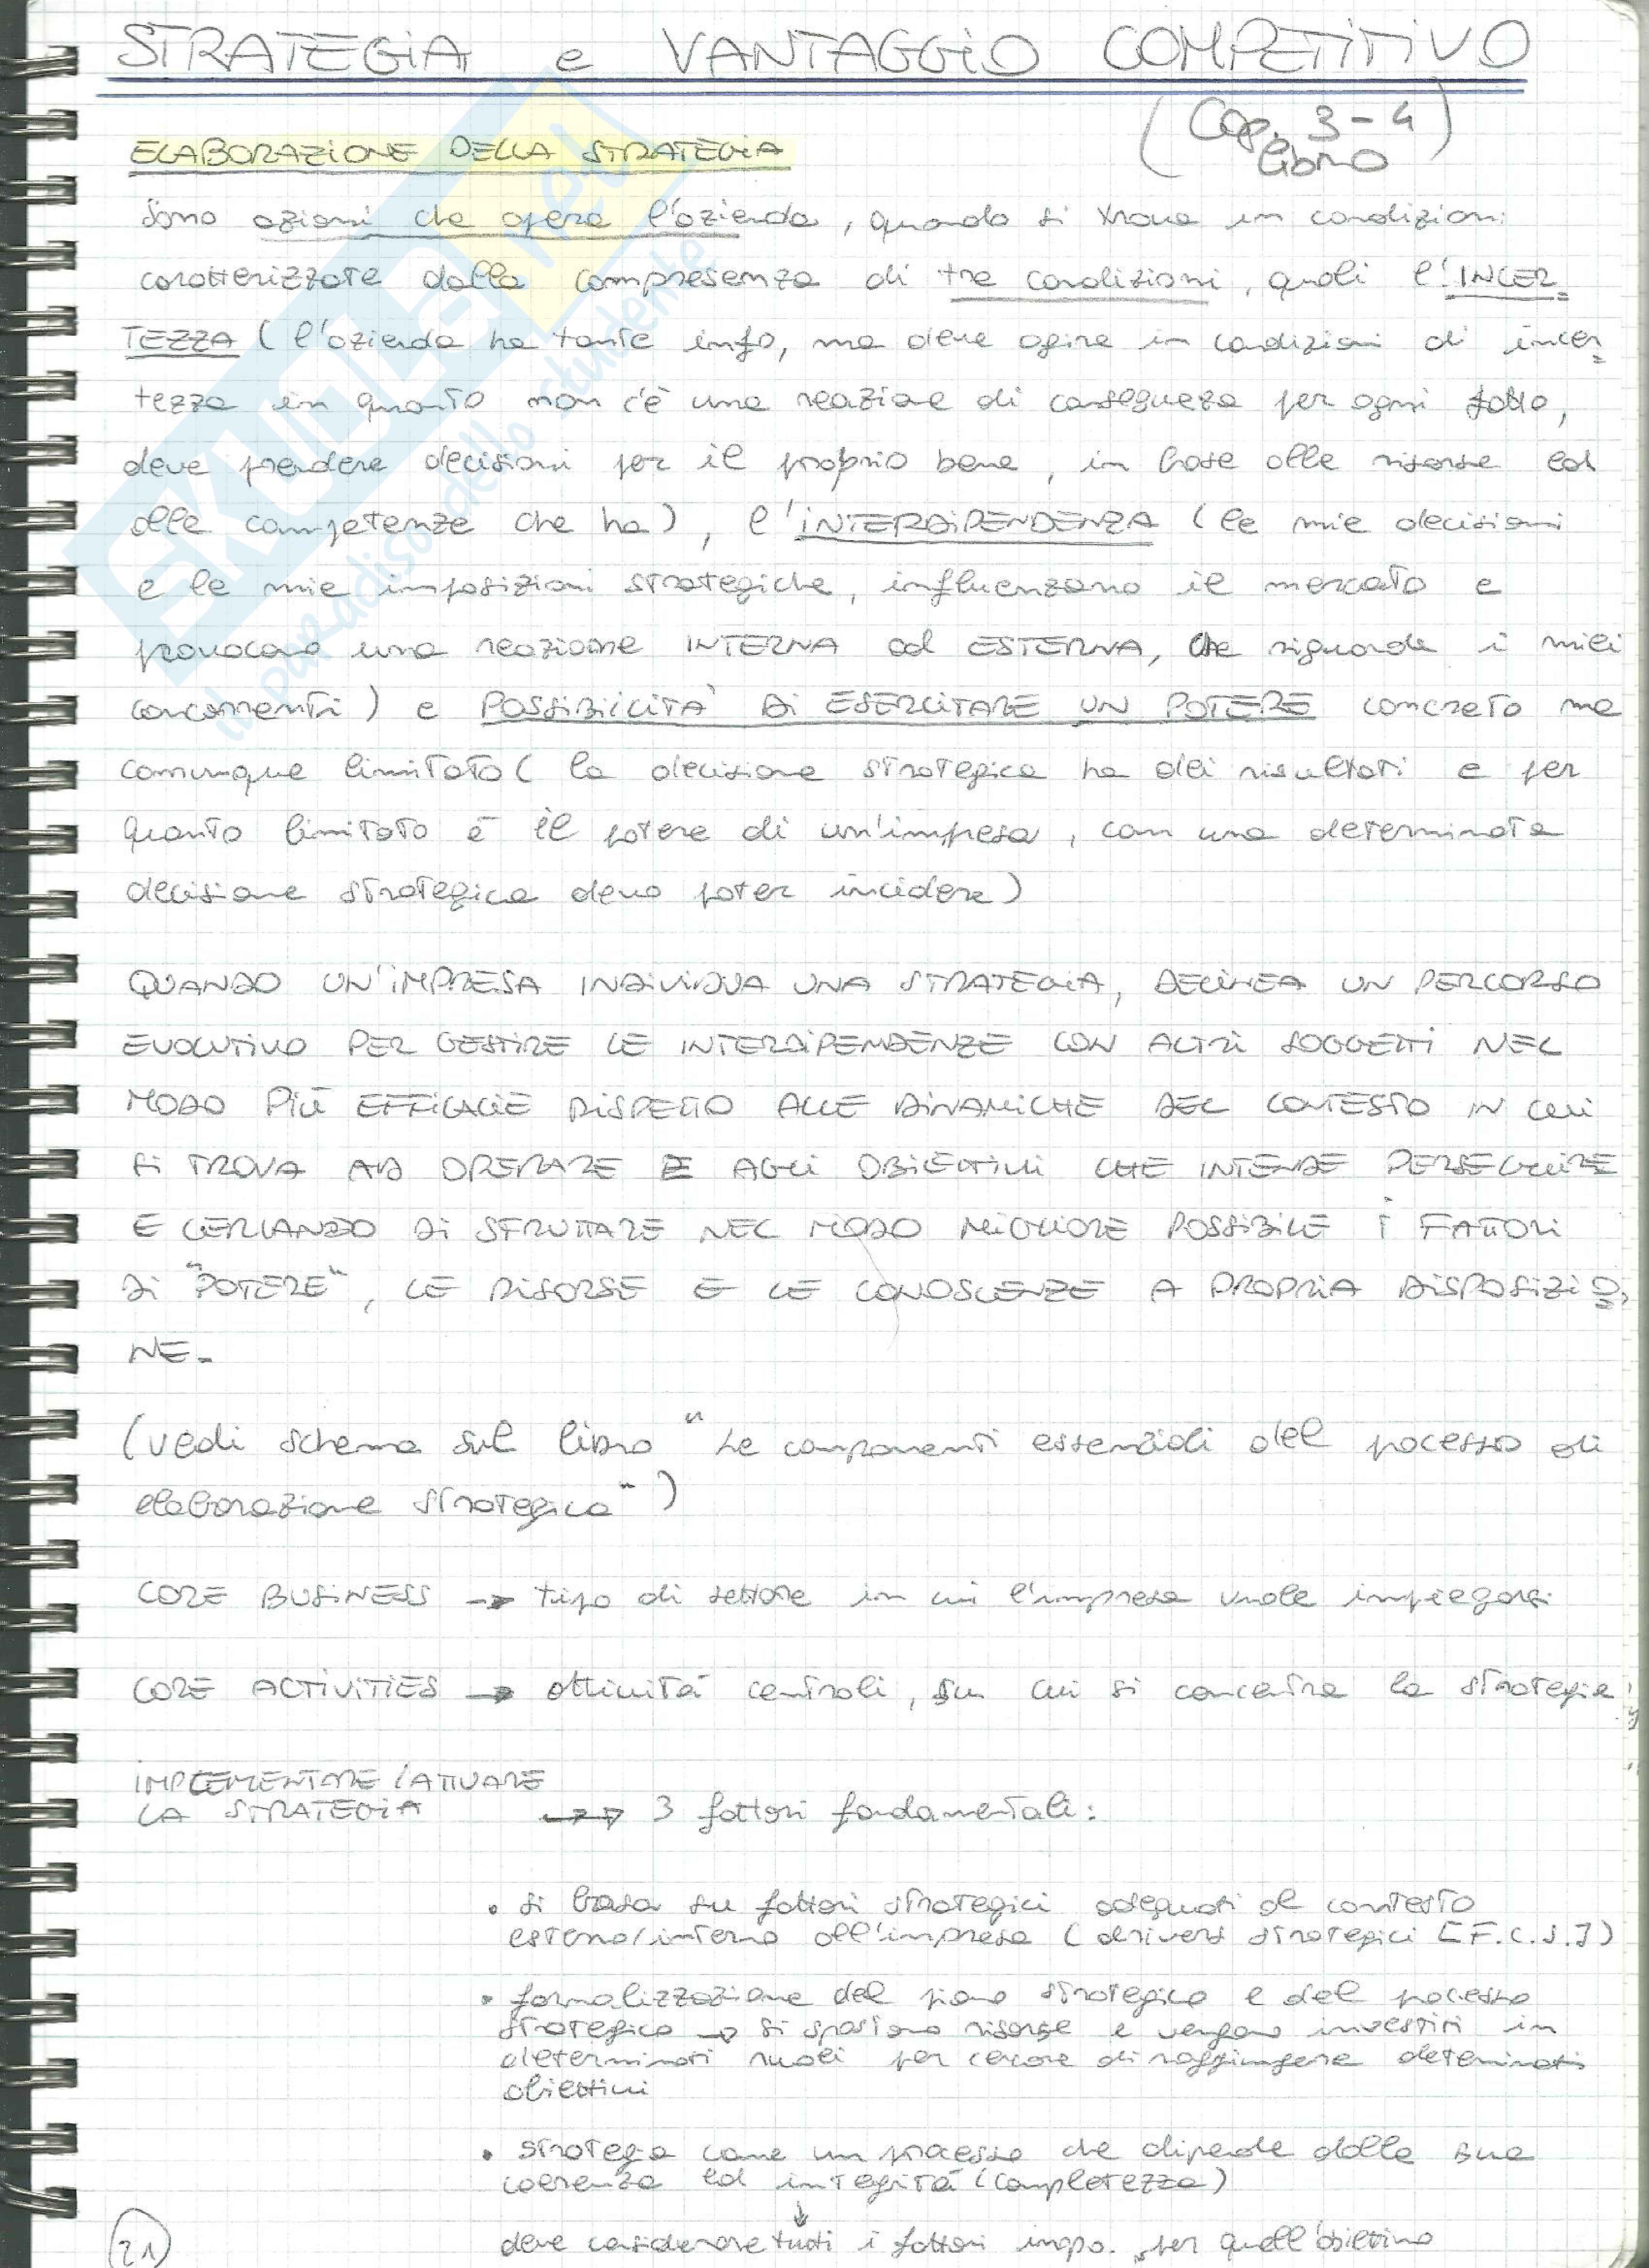 STRATEGIA e VANTAGGIO COMPETITIVO
(Cap. 3-4
libro)
ELABORAZIONE DELLA STRATEGIA
Sono azioni che opera l'azienda, quando si trova in condizioni
caratterizzate dalla compresenza di tre condizioni, quali l'INCER=
TEZZA (l'azienda ha tante info, ma deve agire in condizioni di incer=
tezza in quanto non c'è una reazione di conseguenza per ogni fatto,
deve prendere decisioni per il proprio bene, in base alle risorse ed
alle competenze che ha), l'INTERDIPENDENZA (le mie decisioni
e le mie imposizioni strategiche, influenzano il mercato e
provocano una reazione INTERNA ed ESTERNA, che riguarda i miei
concorrenti) e POSSIBILITÀ DI ESERCITARE UN POTERE concreto ma
comunque limitato (la decisione strategica ha dei risultati e per
quanto limitato è il potere di un'impresa, con una determinata
decisione strategica devo poter incidere)
QUANDO UN'IMPRESA INDIVIDUA UNA STRATEGIA, DELINEA UN PERCORSO
EVOLUTIVO PER GESTIRE LE INTERDIPENDENZE CON ALTRI SOGGETTI NEL
MODO PIÙ EFFICACE RISPETTO ALLE DINAMICHE DEL CONTESTO IN CUI
SI TROVA AD OPERARE E AGLI OBIETTIVI CHE INTENDE PERSEGUIRE
E CERCANDO DI SFRUTTARE NEL MODO MIGLIORE POSSIBILE I FATTORI
DI "POTERE", LE RISORSE E LE CONOSCENZE A PROPRIA DISPOSIZIO=
NE.
(vedi schema sul libro "Le componenti essenziali del processo di
elaborazione strategica")
CORE BUSINESS → tipo di settore in cui l'impresa vuole impiegarsi
CORE ACTIVITIES → attività centrali, su cui si concentra la strategia
IMPLEMENTARE/ATTUARE
LA STRATEGIA →→ 3 fattori fondamentali:
• si basa su fattori strategici adeguati al contesto
esterno/interno all'impresa (drivers strategici [F.C.S.])
• formalizzazione del piano strategico e del processo
strategico → si spostano risorse e vengono investiti in
determinati ruoli per cercare di raggiungere determinati
obiettivi
• strategia come un processo che dipende dalla sua
coerenza ed integrità (completezza)
↓
deve considerare tutti i fattori impo. per quell'obiettivo
21
SKUOLA.net
il paradiso dello studente